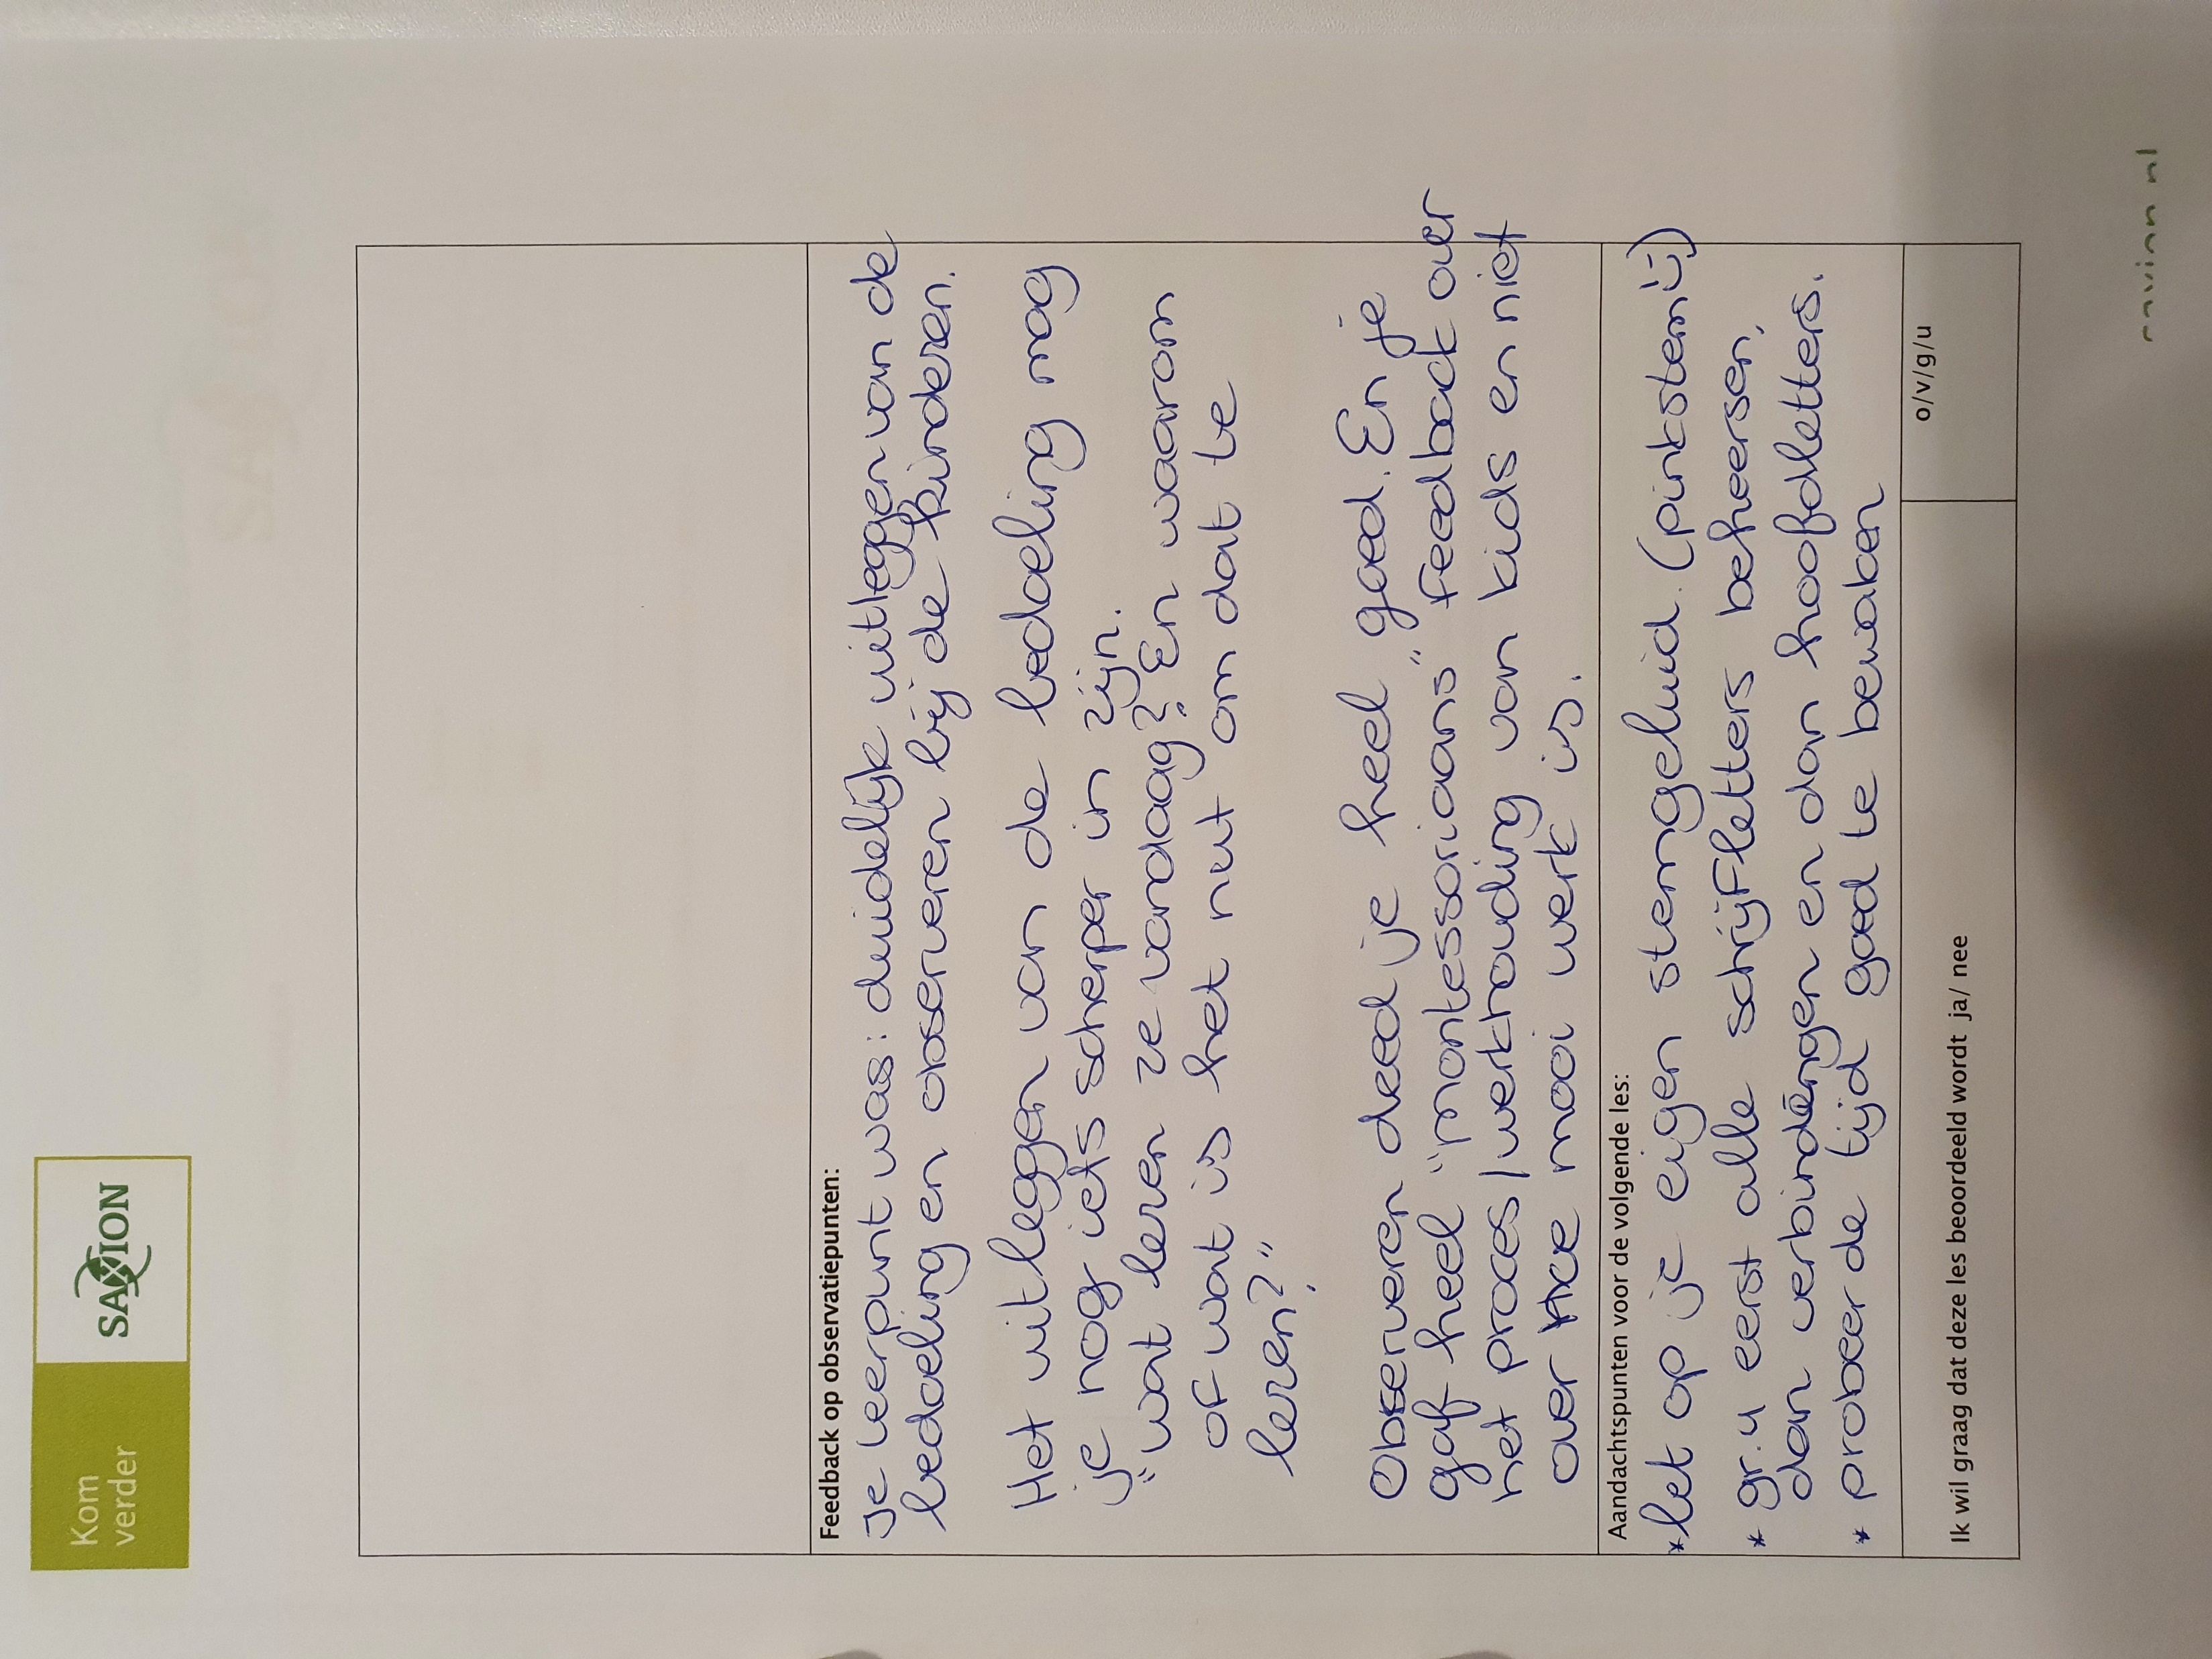 Kom
verder
SAXION
Feedback op observatiepunten:
Je leerpunt was: duidelijk uitleggen van de
bedoeling en observeren bij de kinderen.
Het uitleggen van de bedoeling mag
je nog iets scherper in zijn.
"wat leren ze vandaag? En waarom
of wat is het nut om dat te
leren?"
Observeren deed je heel goed. En je
gaf heel "montessoriaans" feedback over
het proces/werkhouding van kids en niet
over hoe mooi werk is.
Aandachtspunten voor de volgende les:
* let op je eigen stemgeluid. (pinkstem ☺)
* gr. 4 eerst alle schrijfletters beheersen,
dan verbindingen en dan hoofdletters.
* probeer de tijd goed te bewaken
o/v/g/u
Ik wil graag dat deze les beoordeeld wordt ja/ nee
saxion.nl